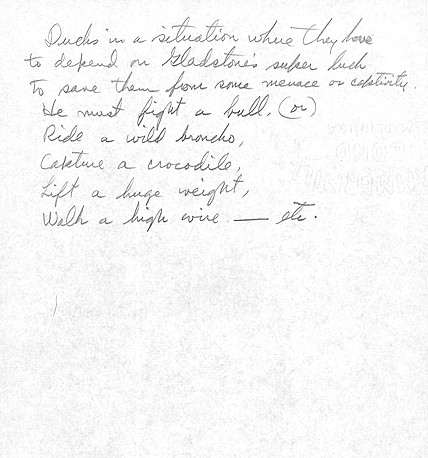 Ducks in a situation where they have
to depend on Gladstone's super luck
To save them from some menace or captivity.
He must fight a bull. (or)
Ride a wild broncho,
Capture a crocodile,
Lift a huge weight,
Walk a high wire — etc.